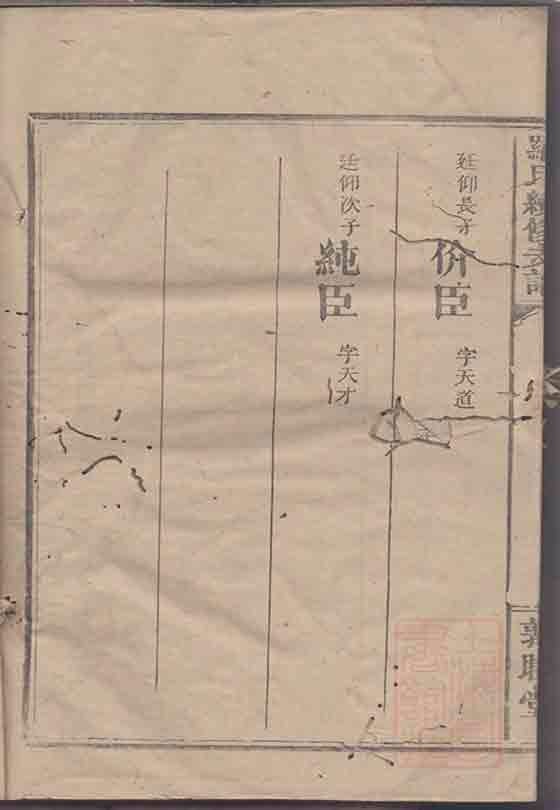 羅氏續修支譜
敦睦堂
廷仰長子 价臣 字天道
廷仰次子 純臣 字天才